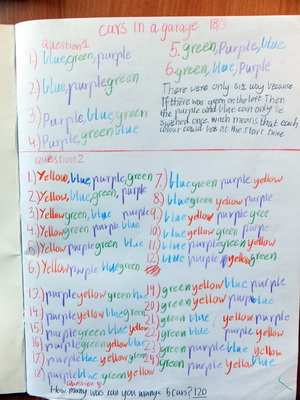 cars in a garage
question 1
1.) blue, green, purple
2.) blue, purple green
3.) Purple, blue, green
4.) Purple, green blue
5. green, Purple, blue
6. green, blue, Purple
There were only six way because
If there was green on the left Then
the purple and blue can only be
swished once, which means that each
colour could be at the start twice
question 2
1.) Yellow, blue, purple, green
2.) Yellow, blue, green, purple
3.) Yellow green, blue purple
4.) Yellow green purple blue
5.) Yellow purple green blue
6.) Yellow purple blue green
7.) blue green purple yellow
8.) blue green yellow purple
9.) blue yellow purple gree
10. blue yellow green purple
11.) blue purple green yellow
12.) blue purple yellow green
13.) purple yellow green blue
14.) purple yellow blue green
15.) purple green blue yellow
16.) purple green yellow blue
17.) purple blue yellow green
18.) purple blue green yellow
19.) green yellow blue purple
20.) green yellow purple blue
21.) green blue yellow purple
22.) green blue purple yellow
23.) green purple blue yellow
24.) green purple yellow blue
question 3
How many was can you arrange 5 cars? 120